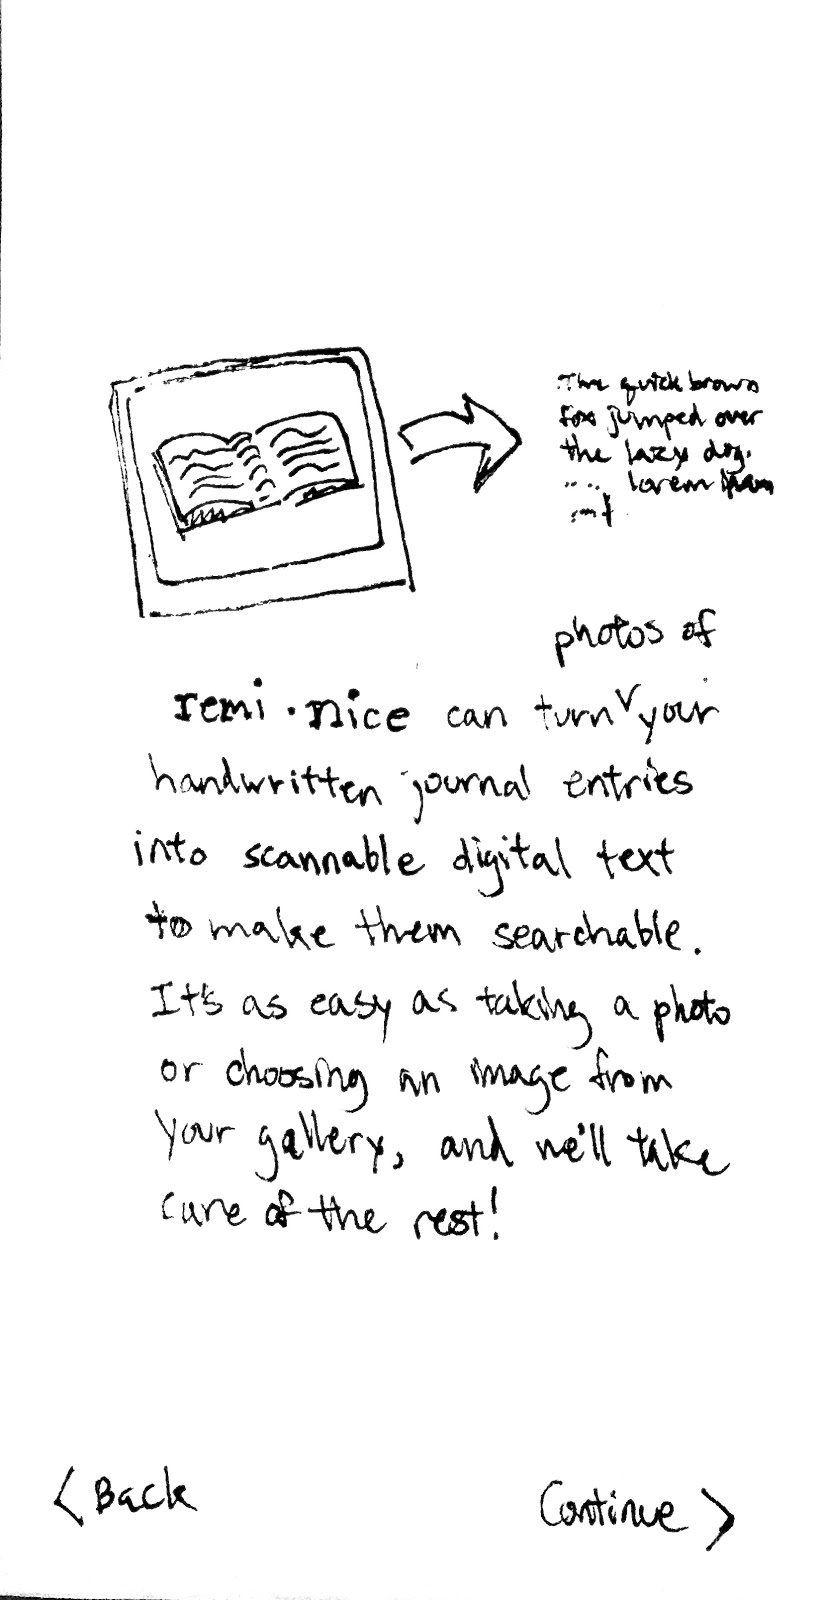 The quick brown
fox jumped over
the lazy dog.
.... lorem
photos of
remi·nice can turn your
handwritten journal entries
into scannable digital text
to make them searchable.
It's as easy as taking a photo
or choosing an image from
your gallery, and we'll take
care of the rest!
< Back
Continue >